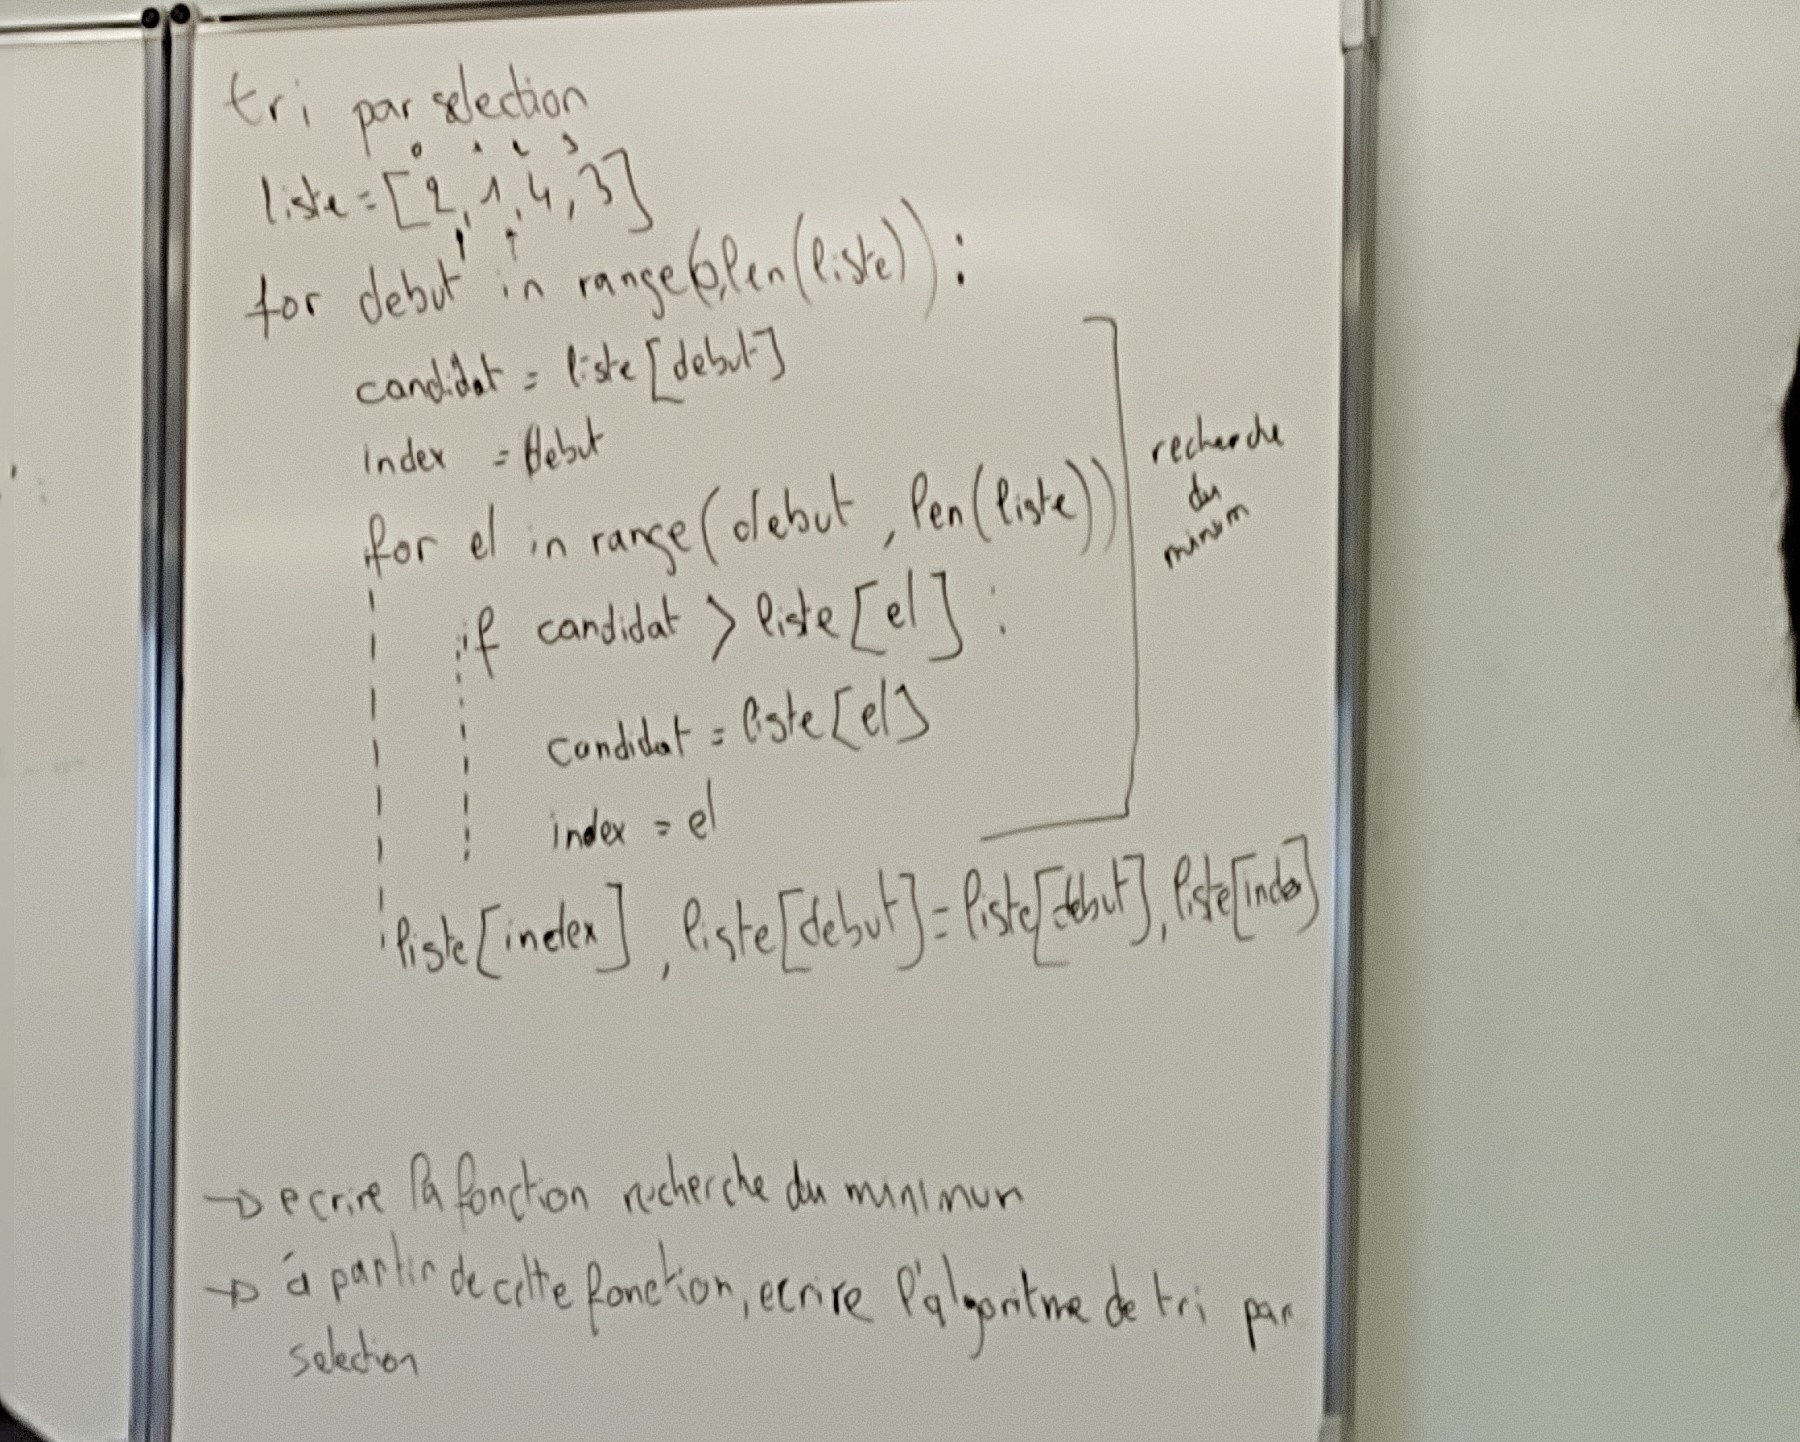 tri par selection
0 1 2 3
liste = [2, 1, 4, 3]
for debut in range(0, len(liste)):
candidat = liste[debut]
index = debut
for el in range(debut, len(liste))
if candidat > liste[el] :
candidat = liste[el]
index = el
liste[index], liste[debut] = liste[debut], liste[index]
recherche
du
minum
→ ecrire la fonction recherche du minimun
→ à partir de cette fonction, ecrire l'algoritme de tri par
selection